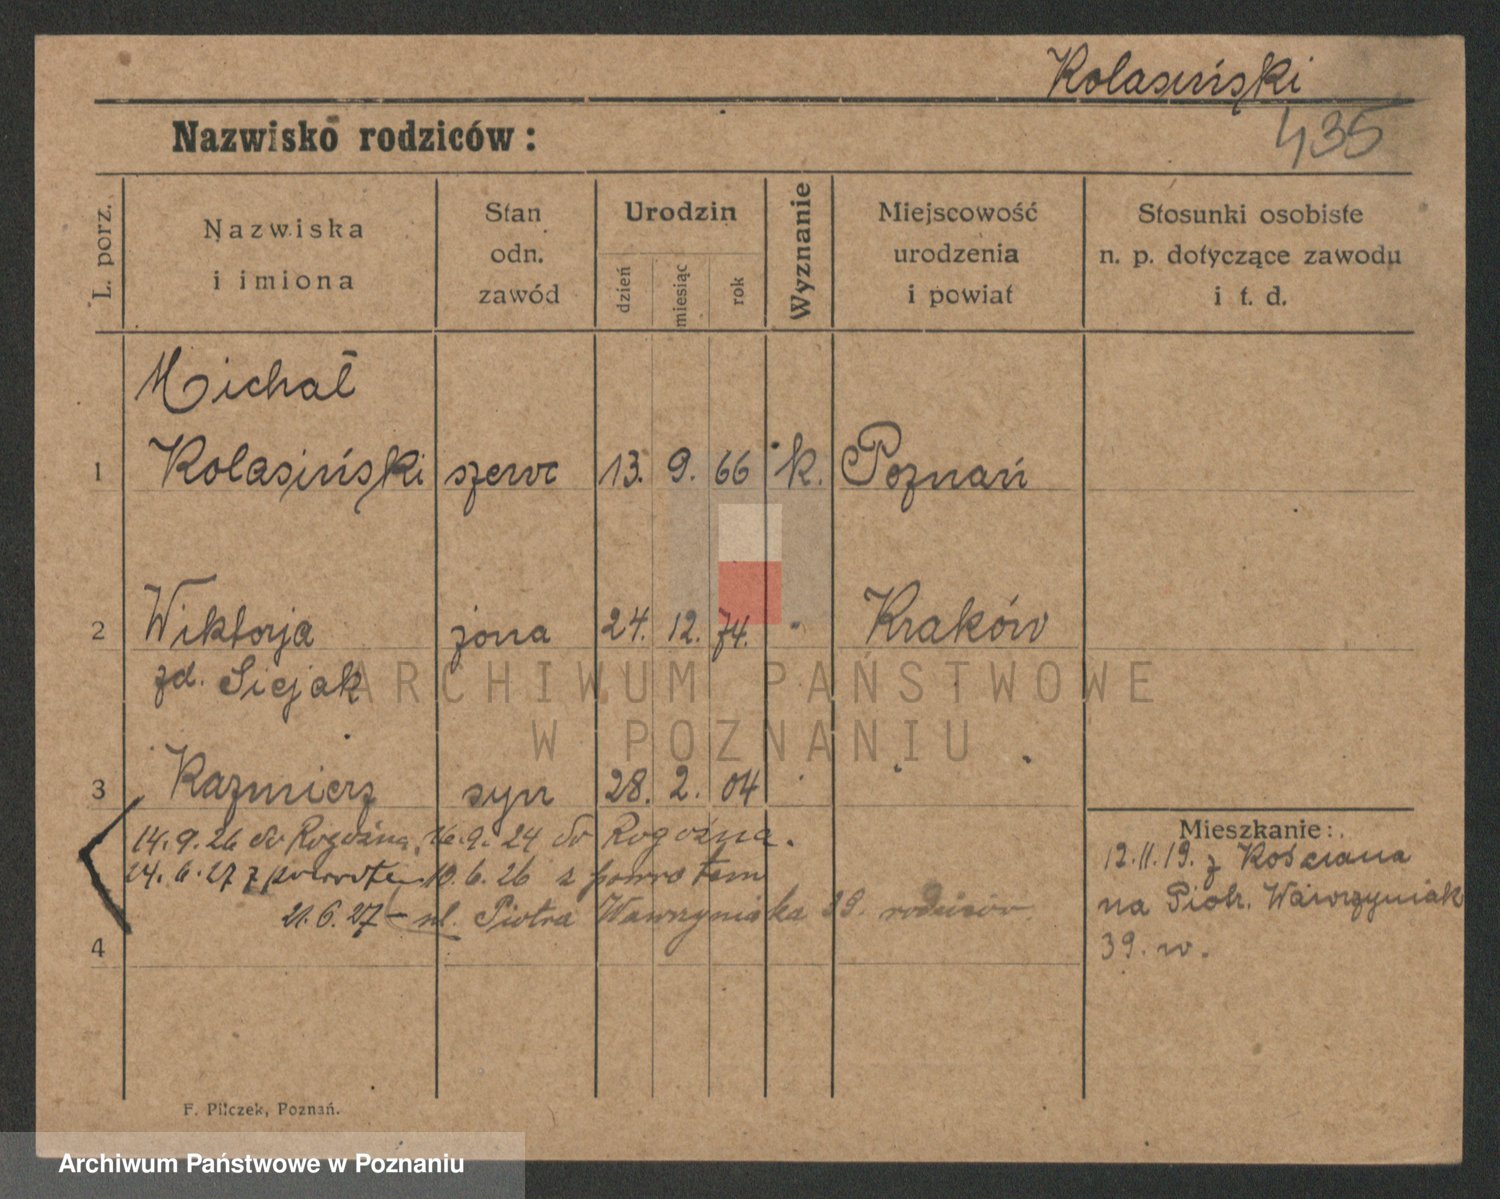 Kolasiński
435
Nazwisko rodziców:
L. porz.
Nazwiska
i imiona
Stan
odn.
zawód
Urodzin
dzień
miesiąc
rok
Wyznanie
Miejscowość
urodzenia
i powiat
Stosunki osobiste
n. p. dotyczące zawodu
i t. d.
Michał
1 Kolasiński szewc 13. 9. 66 k. Poznań
2 Wiktorja żona 24. 12. 74. " Kraków
zd. Siejak
ARCHIWUM PAŃSTWOWE
W POZNANIU
3 Kazmierz syn 28. 2. 04
14.9.26 do Rogoźna, 16.9.24 do Rogoźna.
24.6.27 z powrotem 10.6.26 z powrotem
21.6.27 – ul. Piotra Wawrzyniaka 39. rodziców
4
Mieszkanie:
12.11.19. z Kościana
na Piotr. Wawrzyniak
39. w.
F. Pilczek, Poznań.
Archiwum Państwowe w Poznaniu